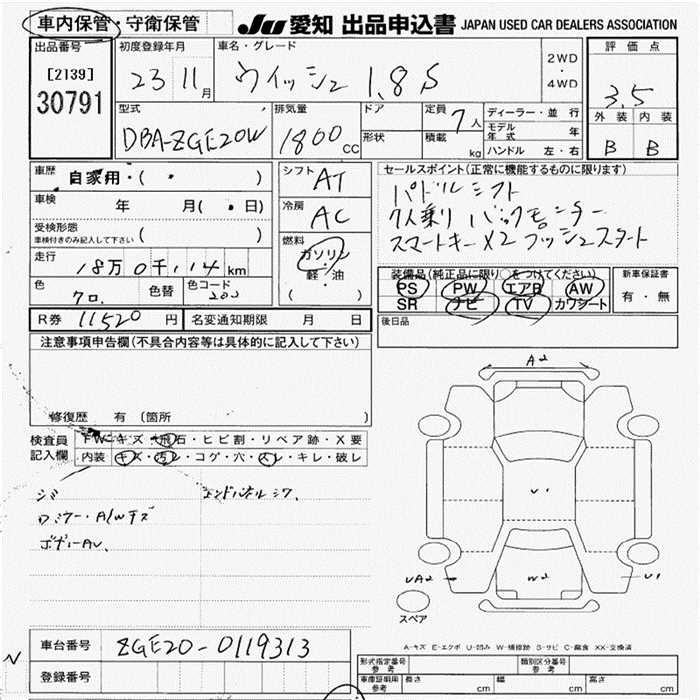 車内保管・守衛保管
JU 愛知 出品申込書 JAPAN USED CAR DEALERS ASSOCIATION
出品番号
[2139]
30791
初度登録年月
23 11月
車名・グレード
ウィッシュ 1.8S
2WD
・
4WD
評価点
3.5
外装 内装
B B
型式
DBA-ZGE20W
排気量
1800cc
ドア
形状
定員 7人
積載 kg
ディーラー・並行
モデル年式 年
ハンドル 左・右
車歴 自家用・( ・ )
車検 年 月( ・日)
受検形態
車検付きのみ記入して下さい ( )
走行
18万0千,14km
色
クロ.
色替
色コード
202
シフト AT
冷房 AC
燃料
ガソリン
・
軽・油
( )
セールスポイント(正常に機能するものに限ります)
パドルシフト
7人乗り バックモニター
スマートキーX2 プッシュスタート
装備品(純正品に限り○をつけてください)
PS PW エアB AW
SR ナビ TV カワシート
新車保証書
有・無
後日品
R券 11520円
名変通知期限 月 日
注意事項申告欄(不具合内容等は具体的に記入して下さい)
修復歴 有(箇所 )
検査員記入欄
FW キズ・飛石・ヒビ割・リペア跡・X要
内装 キズ・汚レ・コゲ・穴・スレ・キレ・破レ
シミ
ワミラー・A/Wキズ
ボディーAU、
エンドパネルシワ.
A2
U1
W2
UA2
U1
スペア
A-キズ E-エクボ U-凹み W-補修跡 S-サビ C-腐食 XX-交換済
車台番号 ZGE20-0119313
登録番号
形式指定番号 参考
類別区分番号 参考
車庫証明用 参考
長さ cm
幅 cm
高さ cm